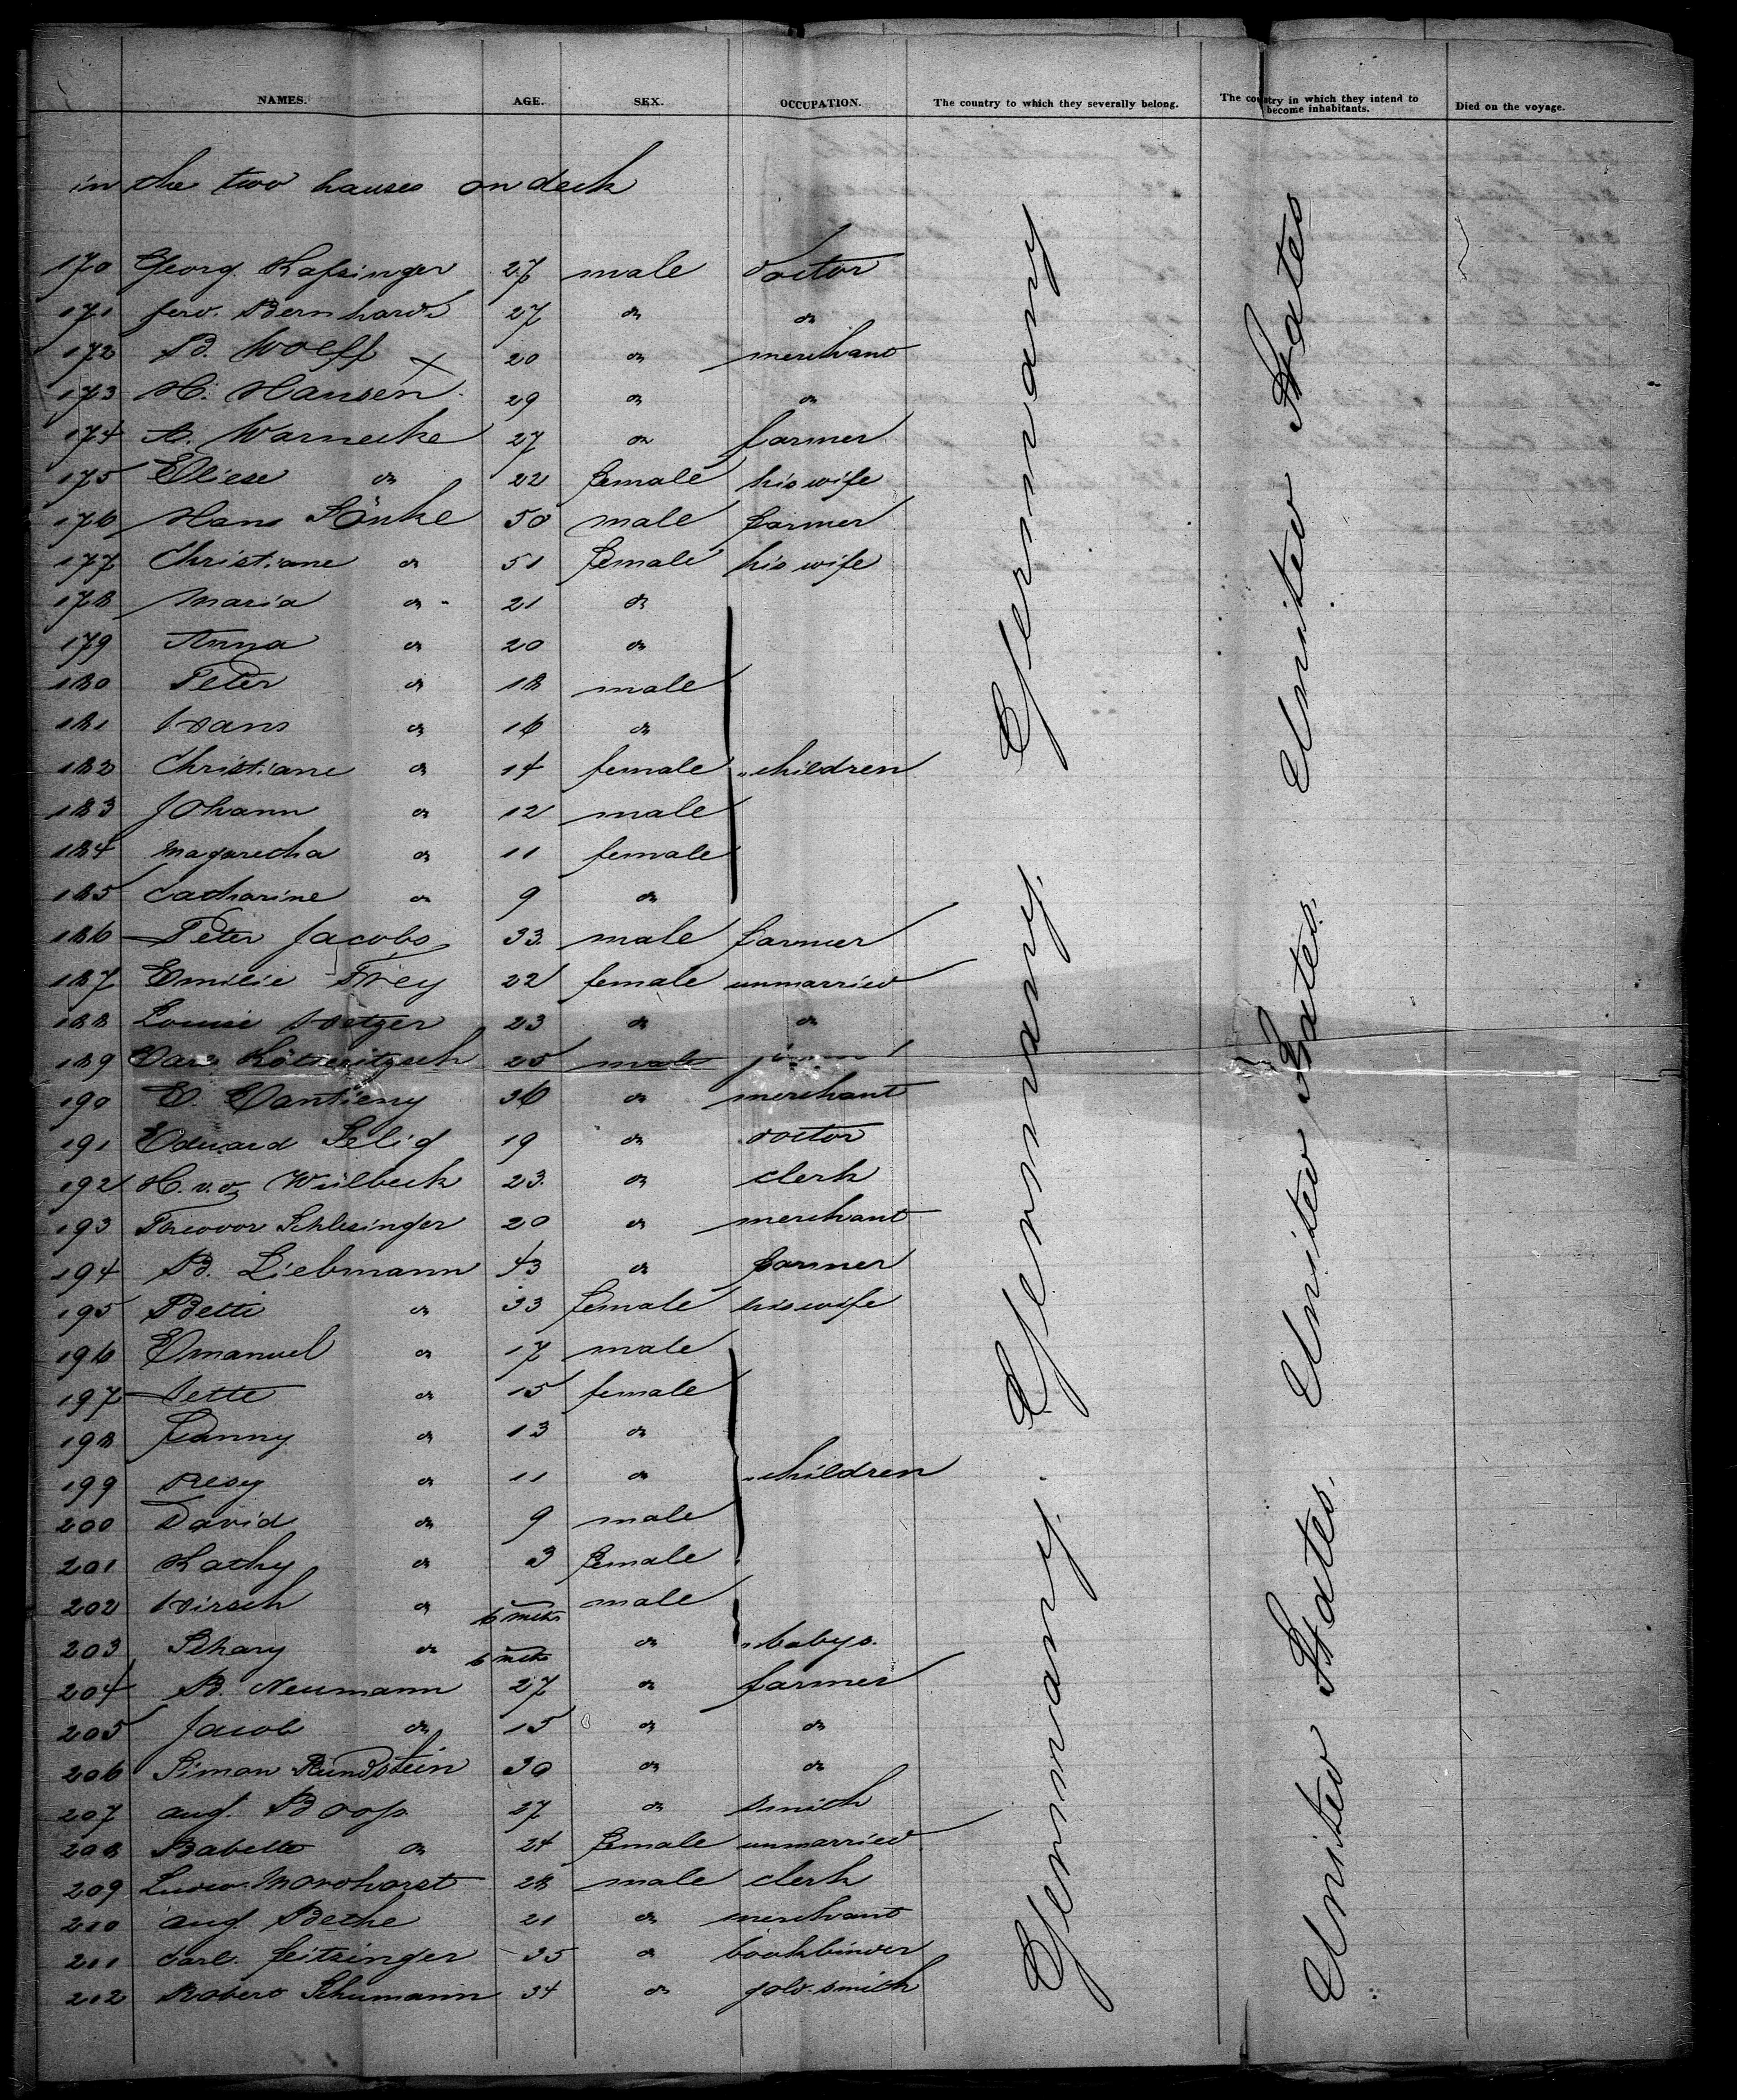 NAMES. AGE. SEX. OCCUPATION. The country to which they severally belong. The country in which they intend to become inhabitants. Died on the voyage.
in the two houses on deck
170 Georg. Kafsinger 27 male doctor
171 ferd. Bernhardi 27 do do
172 B. Wolff 20 do merchand
173 H. Hansen 29 do do
174 A. Warnecke 27 do farmer
175 Eliese do 22 female his wife
176 Hans Sönke 50 male farmer
177 Christiane do 51 female his wife
178 Maria do 21 do
179 Anna do 20 do
180 Peter do 18 male
181 Hans do 16 do
182 Christiane do 14 female children
183 Johann do 12 male
184 Magaretha do 11 female
185 Catharine do 9 do
186 Peter Jacobs 33 male farmer
187 Emilie Frey 22 female unmarried
188 Louise Hetzer 23 do do
189 25 male
190 E. Cantieny 36 do merchant
191 Eduard Selig 19 do doctor
192 H. v. d. Wülbeck 23 do clerk
193 Theodor Schlesinger 20 do merchant
194 B. Liebmann 43 do farmer
195 Betti do 33 female his wife
196 Emanuel do 17 male
197 Jette do 15 female
198 Fanny do 13 do
199 Resy do 11 do children
200 David do 9 male
201 Kathy do 3 female
202 Hirsch do 6 mths male
203 Schary do 6 mths do babys.
204 B. Neumann 27 do farmer
205 Jacob do 15 do do
206 Simon Rundstein 30 do do
207 aug. Boop 27 do smith
208 Babette do 24 female unmarried
209 Ludw. Mordhorst 28 male clerk
210 aug. Bethe 21 do merchant
211 Carl. feitsinger 35 do bookbinder
212 Roberd Schumann 34 do gold smith
Germany
Germany.
Germany.
United States
United States.
United States.